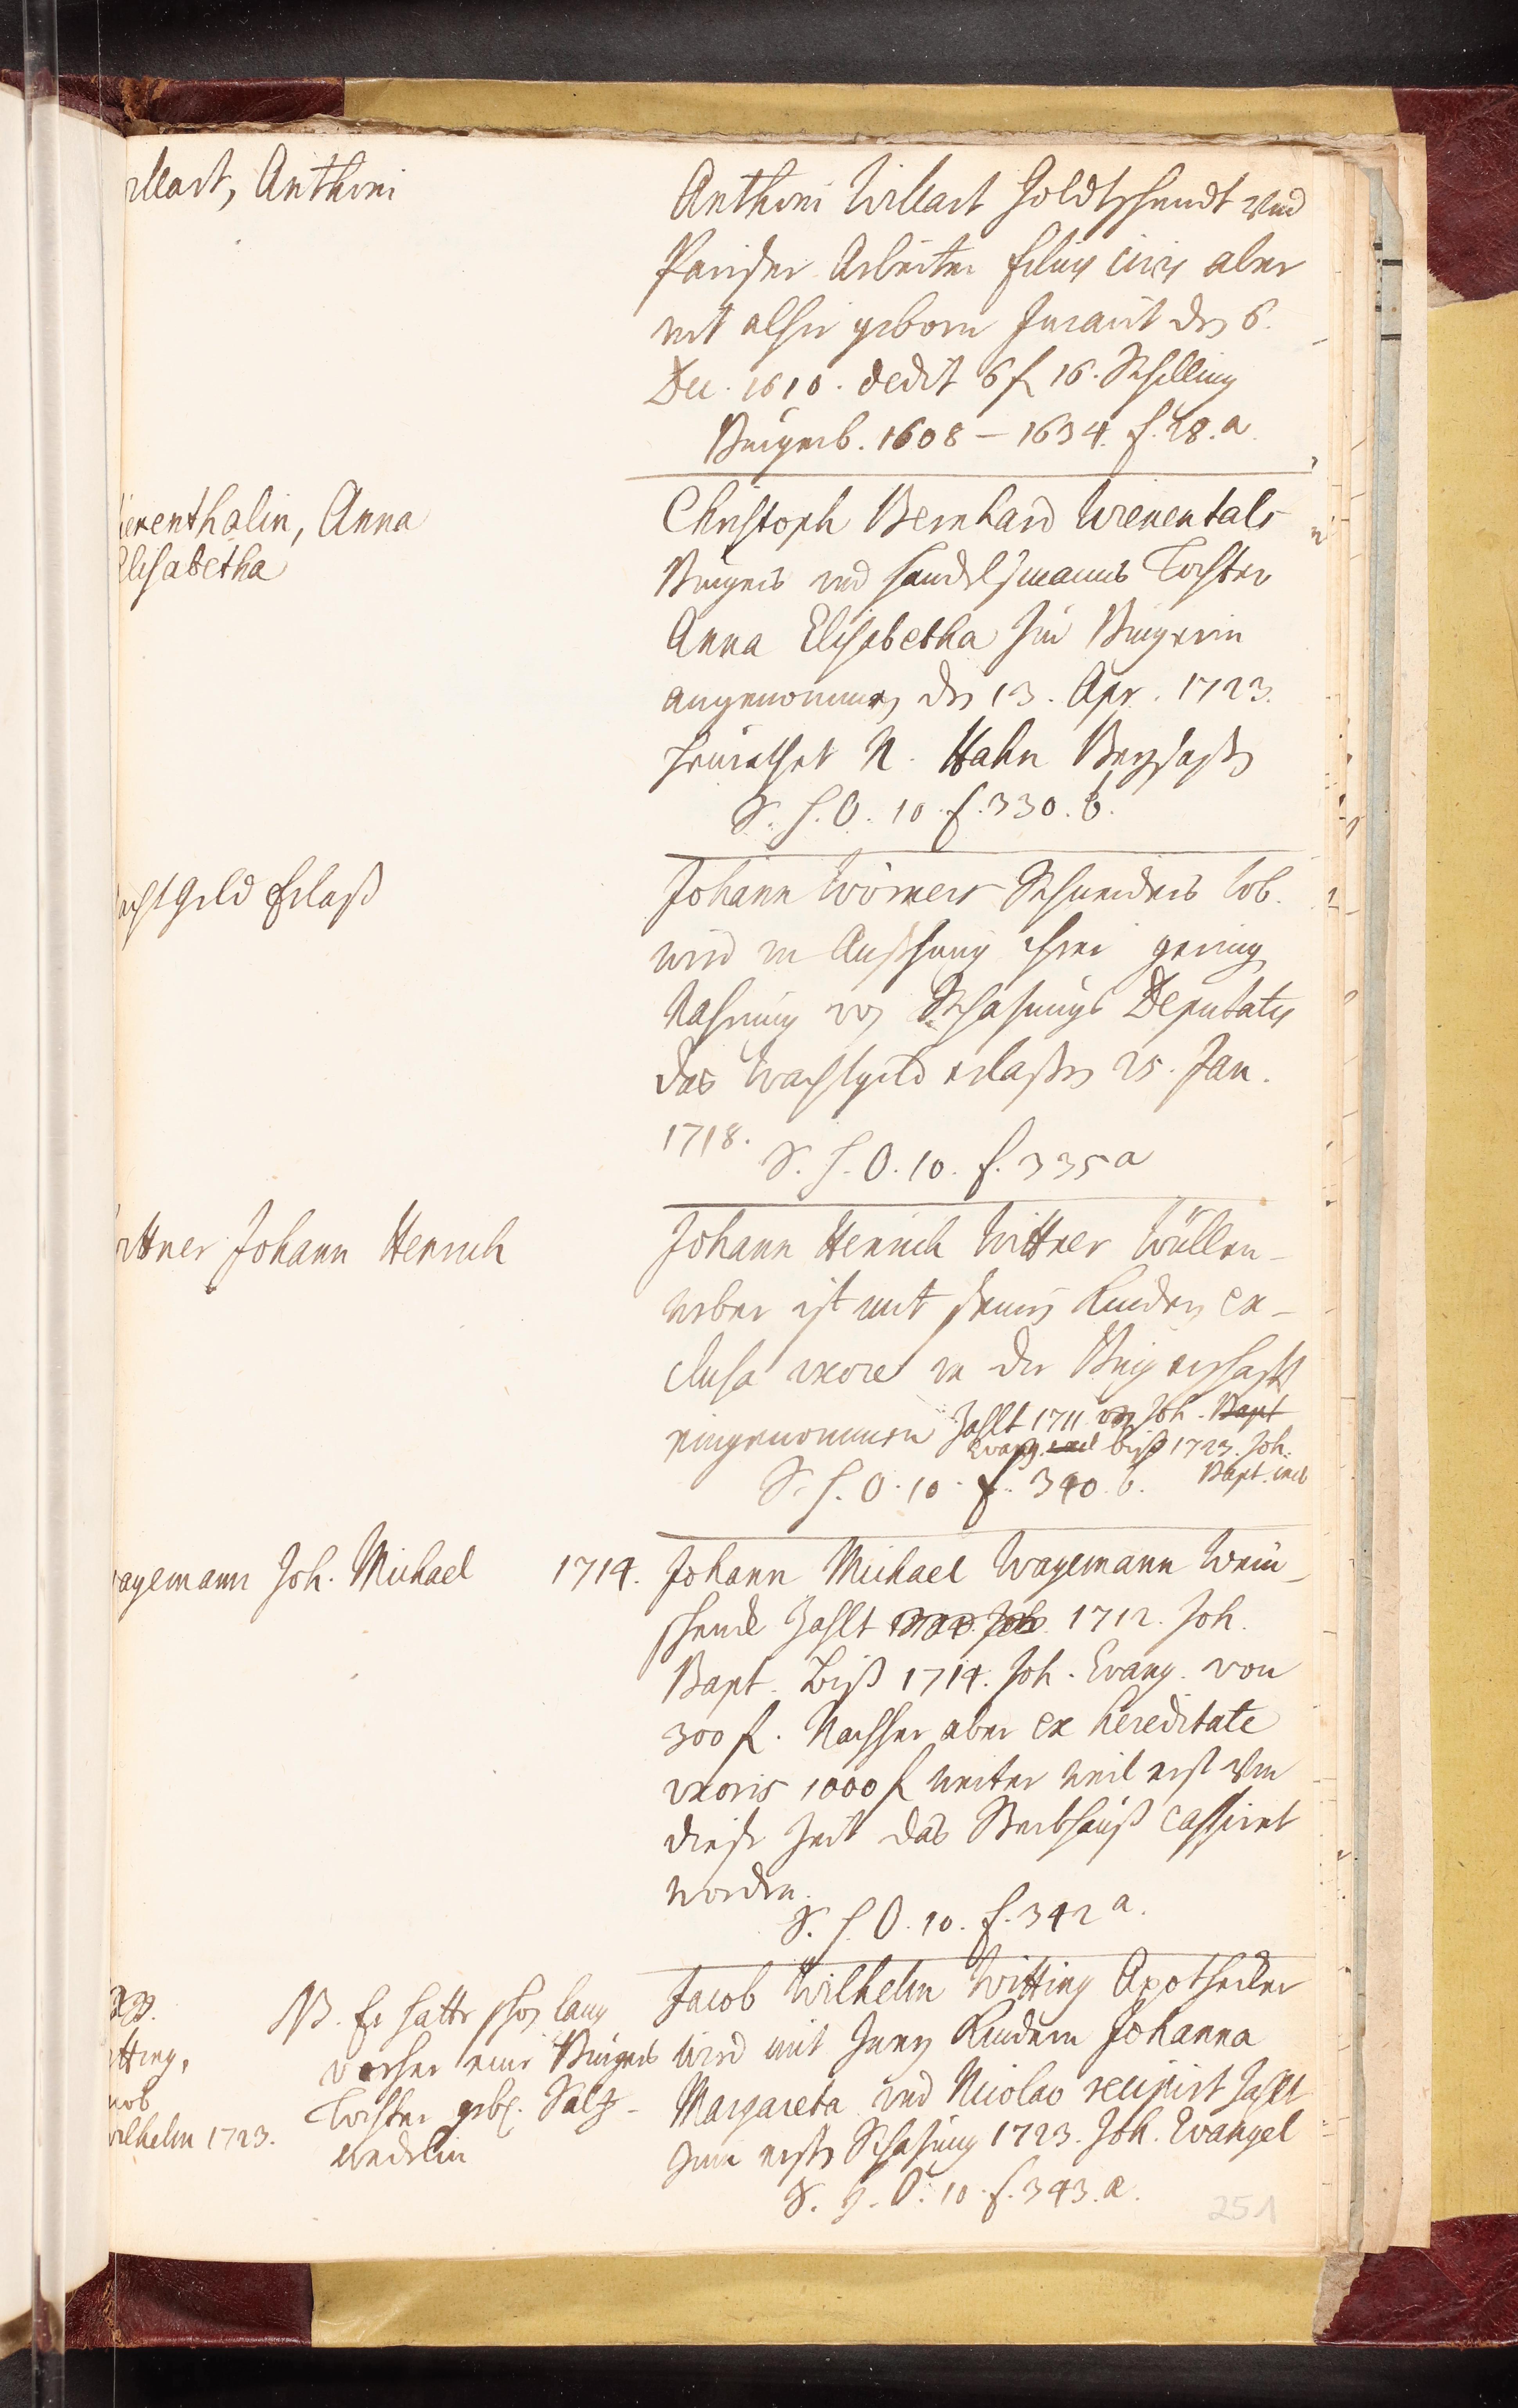 illart, Anthoni
Anthoni Willart Goldtschmidt vnd
Pariser Arbeiter filius civis aber
nit alhir geborn Juravit den 6.
Dec. 1610. dedit 6 f 16. Schilling
Burgerb. 1608 - 1634. f. 28. a.
ienenthalin, Anna
Elisabetha
Christoph Bernhard Wienentals
Burgers und Handelsmanns Tochter
Anna Elisabetha zur Burgerin
angenommen den 13. Apr. 1723.
heurathet N. Hahn Beysaßen
S. H. O. 10. f. 330. b.
achtgeld Erlaß
Johann Wörners Schneiders Wb.
wird in Ansehung ihrer gering
Nahrung von Schatzungs Deputatis
das Wachtgeld erlaßen 25. Jan.
1718.
S. H. O. 10. f. 335 a
ittner Johann Henrich
Johann Henrich Wittner Wüllen-
weber ist mit seinen Kindern ex-
clusa uxore in die Burgerschafft
eingenommen Zahlt 1711 von Joh. Bapt
Evang. incl biß 1723. Joh.
Bapt. incl
S. H. O. 10. f. 340. b.
agemann Joh. Michael 1714.
Johann Michael Wagemann Wein-
schenck Zahlt 1712. Joh.
Bapt. biß 1714. Joh. Evang. von
300 f. Nachher aber ex hereditate
uxoris 1000 f weiter weil erst um
diese Zeit das Sterbhauß cassiret
worden.
S. H. O. 10. f. 342 a.
itting,
cob
ilhelm 1723.
NB. Er hatte schon lang
vorher eine Burgers
Tochter geb. Saltz-
wedelin
Jacob Wilhelm Witting Apothecker
wird mit zweyen Kindern Johanna
Margareta und Nicolao recipirt Zahlt
zum ersten Schatzung 1723. Joh. Evangel
S. H. O. 10. f. 343. a.
251